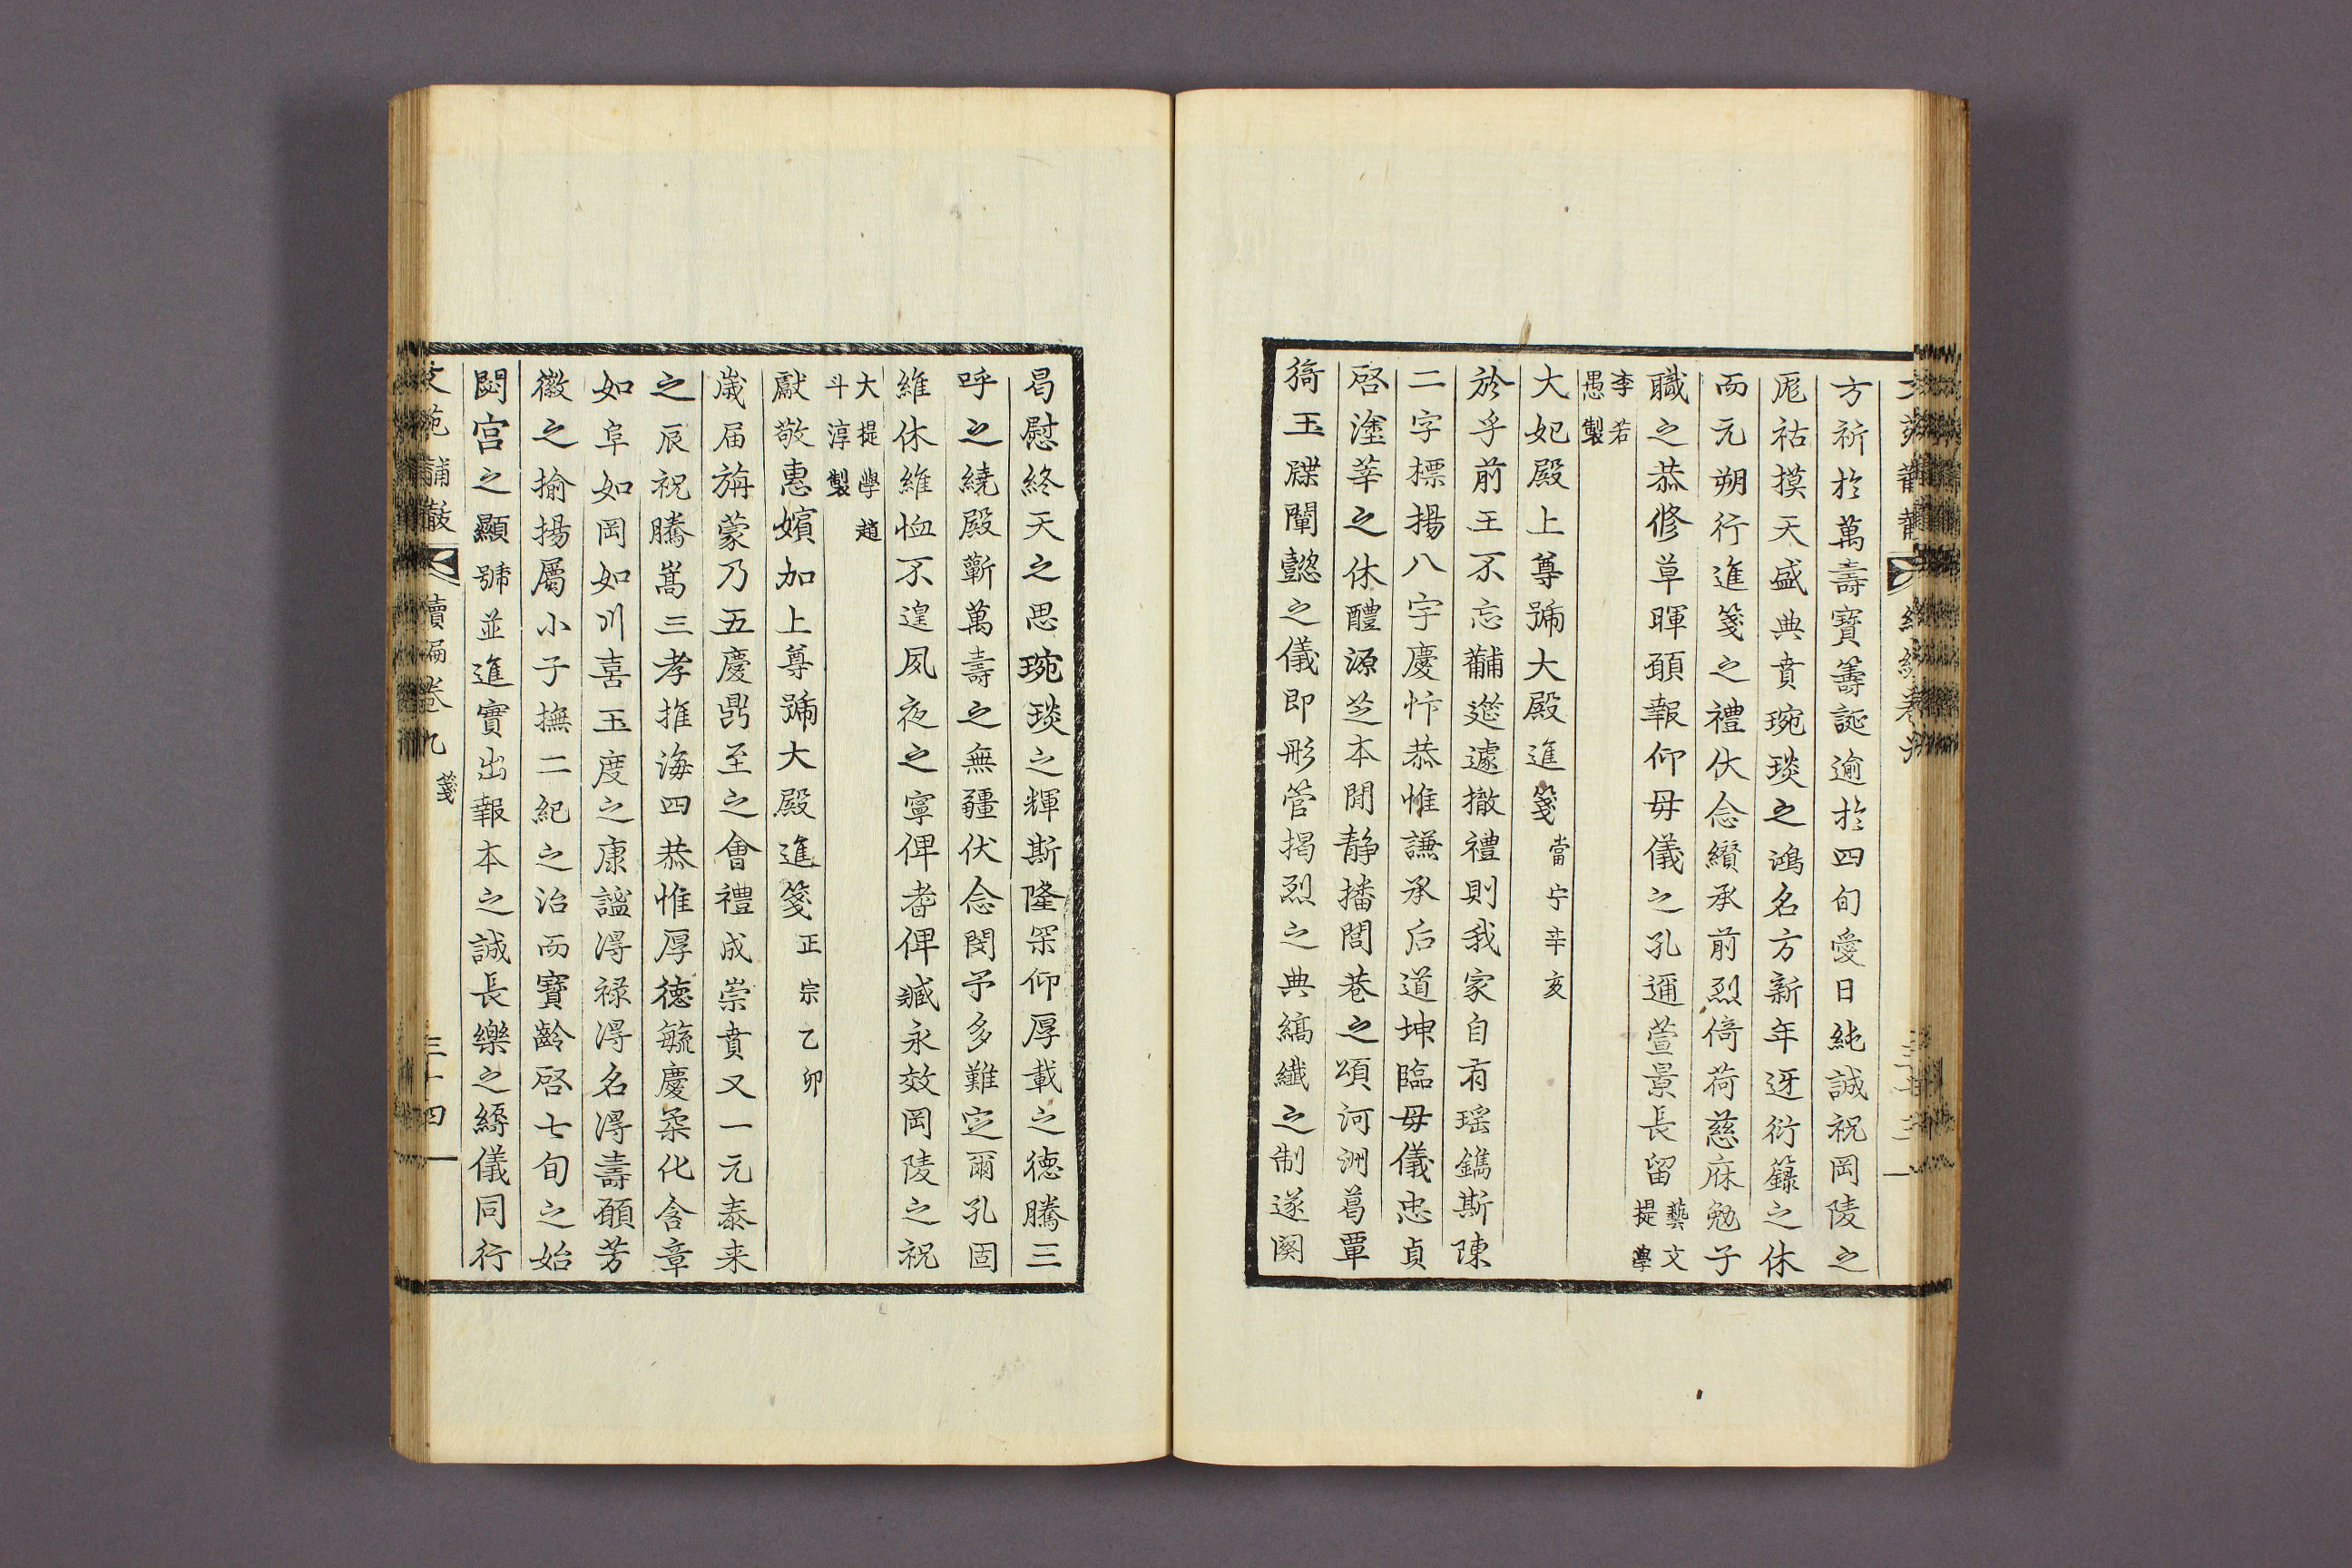 方祈於萬壽寶籌誕逾於四旬愛日純誠祝岡陵之
厖祜摸天盛典賁琬琰之鴻名方新年迓衍籙之休
而元朔行進箋之禮伏念纘承前烈倚荷慈庥勉子
職之恭修草暉願報仰母儀之孔邇萱景長留藝文
提學
李若
愚製
大妃殿上尊號大殿進箋當宁辛亥
於乎前王不忘黼筵遽撤禮則我家自有瑤鐫斯陳
二字標揚八字慶忭恭惟謙承后道坤臨母儀忠貞
啓塗莘之休醴源芝本閒静播閭巷之頌河洲葛覃
猗玉牒闡懿之儀即彤管揭烈之典縞纖之制遂闋
曷慰終天之思琬琰之輝斯隆冞仰厚載之德騰三
呼之繞殿蘄萬壽之無疆伏念閔予多難定爾孔固
維休維恤不遑夙夜之寧俾耆俾臧永效岡陵之祝
大提學趙
斗淳製
獻敬惠嬪加上尊號大殿進箋正宗乙卯
歲届旃蒙乃五慶鼎至之會禮成崇賁又一元泰来
之辰祝騰嵩三孝推海四恭惟厚德毓慶柔化含章
如阜如岡如川喜玉度之康謐得禄得名得壽願芳
徽之揄揚屬小子撫二紀之治而寶齡啓七旬之始
閟宫之顯號並進實出報本之誠長樂之縟儀同行
文苑黼黻 續編卷九 箋 三十四